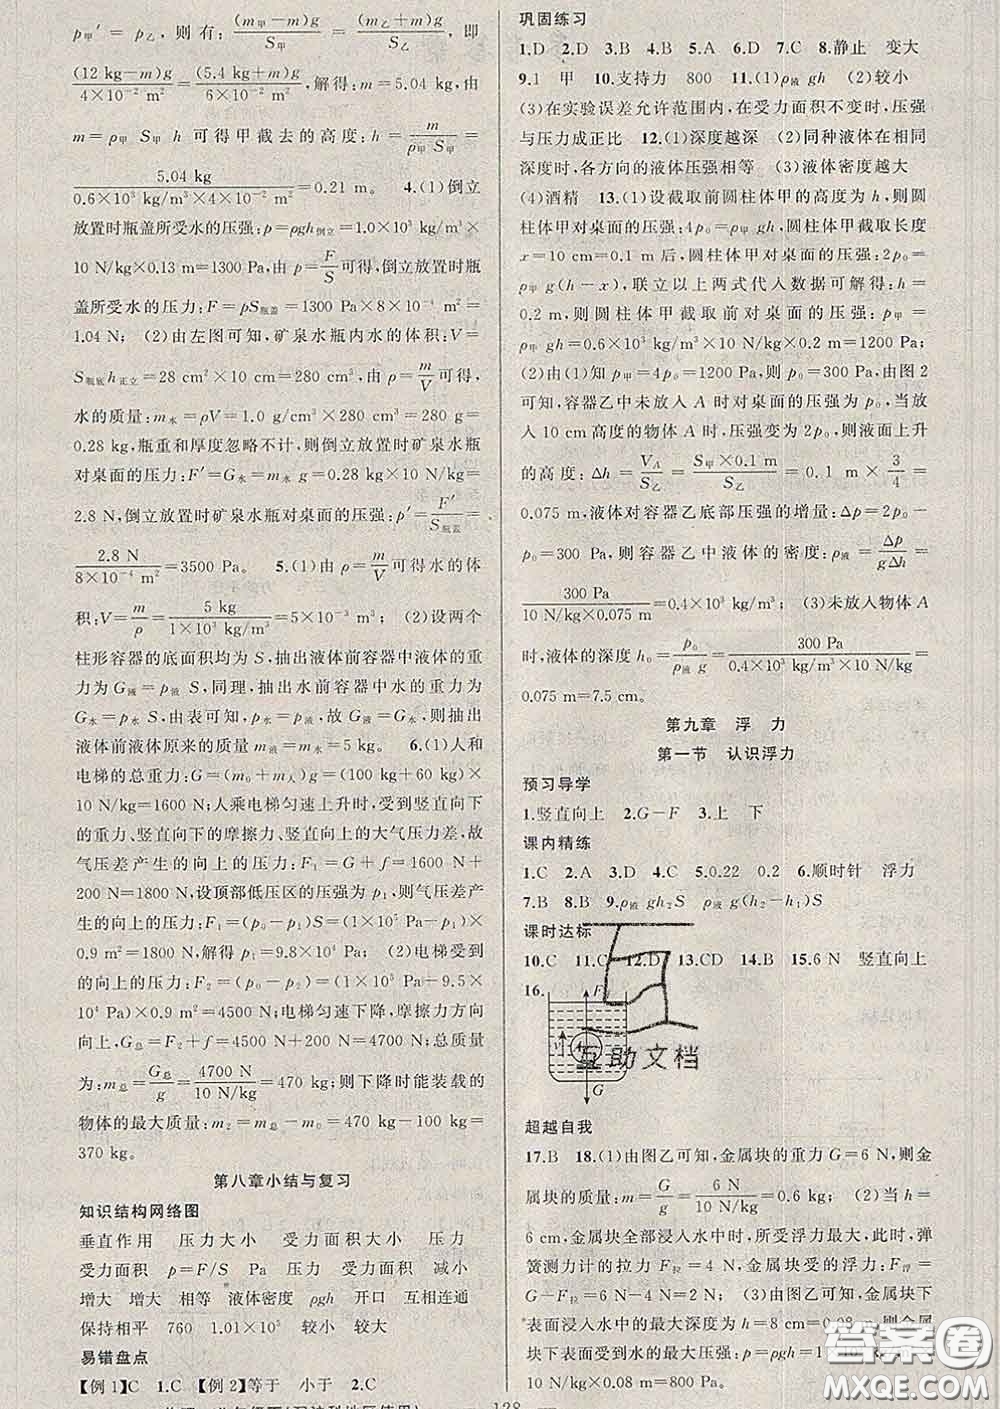 p甲′＝p乙，则有：(m甲－m)g/S甲＝(m乙＋m)g/S乙，即
(12 kg－m)g/4×10⁻² m²＝(5.4 kg＋m)g/6×10⁻² m²，解得：m＝5.04 kg，由
m＝ρ甲 S甲 h 可得甲截去的高度：h＝m/ρ甲 S甲＝
5.04 kg/0.6×10³ kg/m³×4×10⁻² m²＝0.21 m。 4.(1)倒立
放置时瓶盖所受水的压强：p＝ρgh倒立＝1.0×10³ kg/m³×
10 N/kg×0.13 m＝1300 Pa，由 p＝F/S可得，倒立放置时瓶
盖所受水的压力：F＝pS瓶盖＝1300 Pa×8×10⁻⁴ m²＝
1.04 N； (2)由左图可知，矿泉水瓶内水的体积：V＝
S瓶底h正立＝28 cm²×10 cm＝280 cm³，由 ρ＝m/V可得，
水的质量：m水＝ρV＝1.0 g/cm³×280 cm³＝280 g＝
0.28 kg，瓶重和厚度忽略不计，则倒立放置时矿泉水瓶
对桌面的压力：F′＝G水＝m水g＝0.28 kg×10 N/kg＝
2.8 N，倒立放置时矿泉水瓶对桌面的压强：p′＝F′/S瓶盖＝
2.8 N/8×10⁻⁴ m²＝3500 Pa。 5.(1)由 ρ＝m/V可得水的体
积：V＝m/ρ＝5 kg/1×10³ kg/m³＝5×10⁻³ m³； (2)设两个
柱形容器的底面积均为 S，抽出液体前容器中液体的重
力为 G液＝p液 S，同理，抽出水前容器中水的重力为
G水＝p水 S，由表可知，p液＝p水，故 G液＝G水，则抽出
液体前液体原来的质量 m液＝m水＝5 kg。 6.(1)人和
电梯的总重力：G＝(m₀＋m人)g＝(100 kg＋60 kg)×
10 N/kg＝1600 N；人乘电梯匀速上升时，受到竖直向下
的重力、竖直向下的摩擦力、竖直向上的大气压力差，故
气压差产生的向上的压力：F₁＝G＋f＝1600 N
＋200 N＝1800 N，设顶部低压区的压强为 p₁，则气压差产
生的向上的压力：F₁＝(p₀－p₁)S＝(1×10⁵－p₁)×
0.9 m²＝1800 N，解得 p₁＝9.8×10⁴ Pa； (2)电梯受到
的向上的压力：F₂＝(p₀－p₂)＝(1×10⁵ Pa－9.5×
10⁴ Pa)×0.9 m²＝4500 N；电梯匀速下降，摩擦力方向
向上，总重力：G总＝F₂＋f＝4500 N＋200 N＝4700 N；总质量
为：m总＝G总/g＝4700 N/10 N/kg＝470 kg；则下降时能装载的
物体的最大质量：m₂＝m总－m₀＝470 kg－100 kg＝
370 kg。
第八章小结与复习
知识结构网络图
垂直作用 压力大小 受力面积大小 压力
受力面积 p＝F/S Pa 压力 受力面积 减小
增大 增大 相等 液体密度 ρgh 开口 互相连通
保持相平 760 1.01×10⁵ 较小 较大
易错盘点
【例 1】C 1.C 【例 2】等于 小于 2.C
巩固练习
1.D 2.D 3.B 4.B 5.A 6.D 7.C 8.静止 变大
9.1 甲 10.支持力 800 11.(1)ρ液 gh (2)较小
(3)在实验误差允许范围内，在受力面积不变时，压强
与压力成正比 12.(1)深度越深 (2)同种液体在相同
深度时，各方向的液体压强相等 (3)液体密度越大
(4)酒精 13.(1)设截取前圆柱体甲的高度为 h，则圆
柱体甲对桌面的压强：4p₀＝ρ甲 gh，圆柱体甲截取长度
x＝10 cm＝0.1 m 后，圆柱体甲对桌面的压强：2p₀＝
ρ甲 g(h－x)，联立以上两式代入数据可解得：h＝
0.2 m，则圆柱体甲截取前对桌面的压强：p甲＝
ρ甲 gh＝0.6×10³ kg/m³×10 N/kg×0.2 m＝1200 Pa；
(2)由(1)知 p甲＝4p₀＝1200 Pa，则 p₀＝300 Pa，由图 2
可知，容器乙中未放入 A 时对桌面的压强为 p₀，当放
入 10 cm 高度的物体 A 时，压强变为 2p₀，则液面上升
的高度：Δh＝VA/S乙＝S甲×0.1 m/S乙＝0.1 m×3/4＝
0.075 m，液体对容器乙底部压强的增量：Δp＝2p₀－
p₀＝300 Pa，则容器乙中液体的密度：ρ液＝Δp/gΔh＝
300 Pa/10 N/kg×0.075 m＝0.4×10³ kg/m³； (3)未放入物体 A
时，液体的深度 h₀＝p₀/ρ液 g＝300 Pa/0.4×10³ kg/m³×10 N/kg＝
0.075 m＝7.5 cm。
第九章 浮 力
第一节 认识浮力
预习导学
1.竖直向上 2.G－F 3.上 下
课内精练
1.C 2.A 3.D 4.C 5.0.22 0.2 6.顺时针 浮力
7.B 8.B 9.ρ液 gh₂S ρ液 g(h₂－h₁)S
课时达标
10.C 11.C 12.D 13.CD 14.B 15.6 N 竖直向上
16.
F
v
G
互助文档
超越自我
17.B 18.(1)由图乙可知，金属块的重力 G＝6 N，则金
属块的质量：m＝G/g＝6 N/10 N/kg＝0.6 kg； (2)当 h＝
6 cm，金属块全部浸入水中时，所受浮力最大，此时，弹
簧测力计的拉力 F拉＝4 N，金属块受的浮力：F浮＝
G－F拉＝6 N－4 N＝2 N； (3)由图乙可知，金属块下
表面浸入水中的最大深度为 h＝8 cm＝0.08 m，则金属
块下表面受到水的最大压强：p＝ρgh＝1×10³ kg/m³×
10 N/kg×0.08 m＝800 Pa。
128
答案圈
MXQE.COM